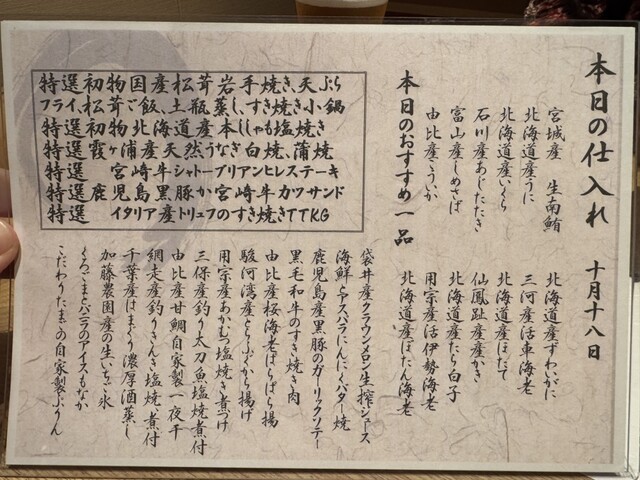 本日の仕入れ 十月十八日
宮城産 生南鮪
北海道産うに
北海道産いくら
石川産あじたたき
富山産しめさば
由比産こういか
北海道産ずわいがに
三河産活車海老
北海道産ほたて
仙鳳趾産産かき
北海道産たら白子
用宗産活伊勢海老
北海道産ぼたん海老
本日のおすすめ一品
特選初物国産松茸岩手焼き、天ぷら
フライ、松茸ご飯、土瓶蒸し、すき焼き小鍋
特選初物北海道産本しゃも塩焼き
特選霞ヶ浦産天然うなぎ白焼、蒲焼
特選 宮崎牛シャトーブリアンヒレステーキ
特選鹿児島黒豚か宮崎牛カツサンド
特選 イタリア産トリュフのすき焼きTTKG
袋井産クラウンメロン生搾ジュース
海鮮とアスパラにんにくバター焼
鹿児島産黒豚のガーリックソテー
黒毛和牛のすき焼き肉
由比産桜海老ばらばら揚
駿河湾産とらふぐから揚げ
用宗産あかむつ塩焼き煮付け
三保産釣り太刀魚塩焼煮付
由比産甘鯛自家製一夜干
網走産釣りきんき塩焼、煮付
千葉産はまぐり濃厚酒蒸し
加藤農園産の生いちご氷
くろごまとバニラのアイスもなか
こだわりたまごの自家製ぷりん